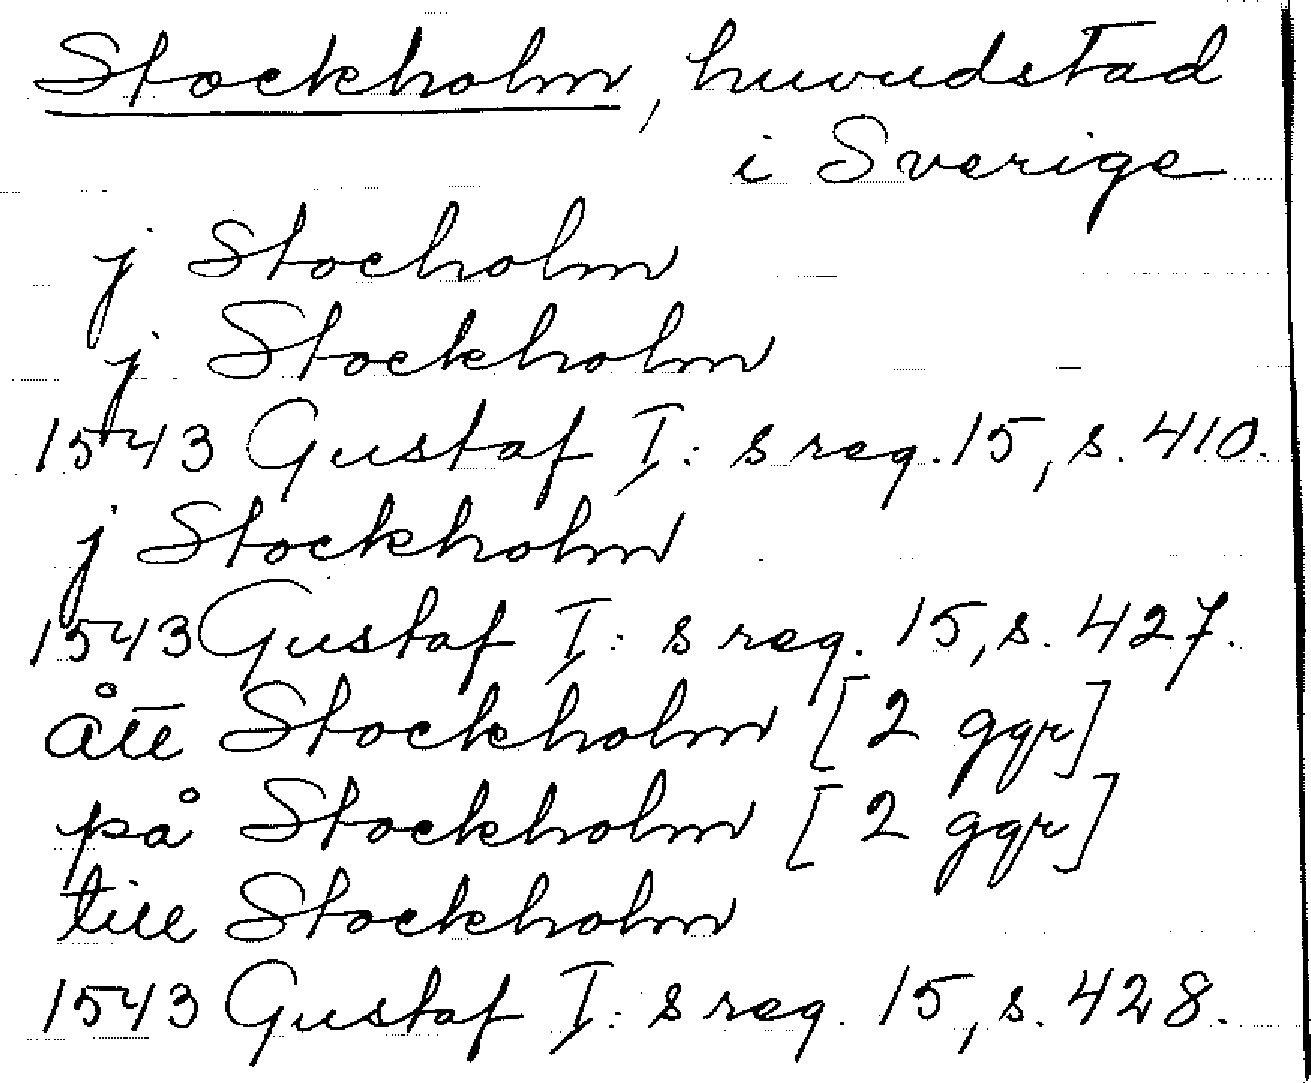 Stockholm, huvudstad
i Sverige
j Stocholm
j Stockholm
1543 Gustaf I:s reg. 15, s. 410.
j Stockholm
1543 Gustaf I:s reg. 15, s. 427.
ått Stockholm [2 ggr]
på Stockholm [2 ggr]
till Stockholm
1543 Gustaf I:s reg. 15, s. 428.